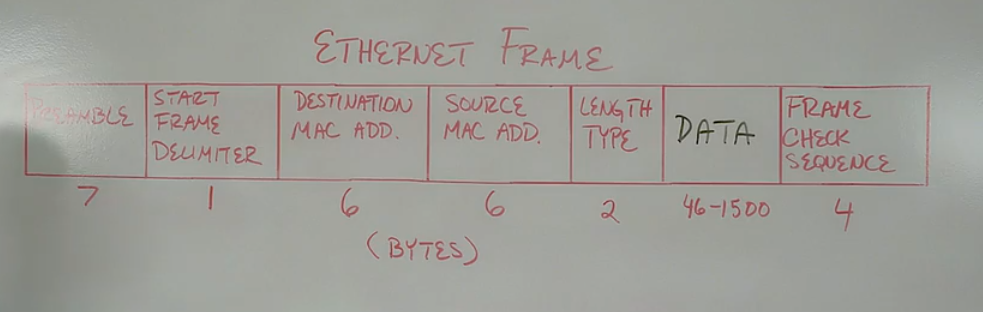 ETHERNET FRAME
PREAMBLE
START
FRAME
DELIMITER
DESTINATION
MAC ADD.
SOURCE
MAC ADD.
LENGTH
TYPE
DATA
FRAME
CHECK
SEQUENCE
7 1 6 6 2 46-1500 4
(BYTES)